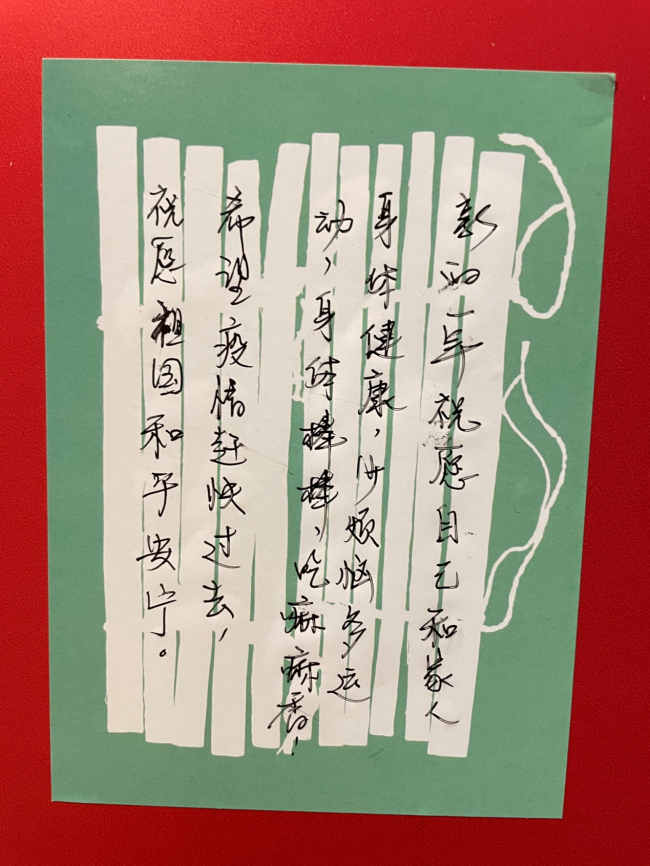 新的一年祝愿自己和家人
身体健康，少烦恼多运
动，身体棒棒，吃嘛嘛香！
希望疫情赶快过去，
祝愿祖国和平安宁。